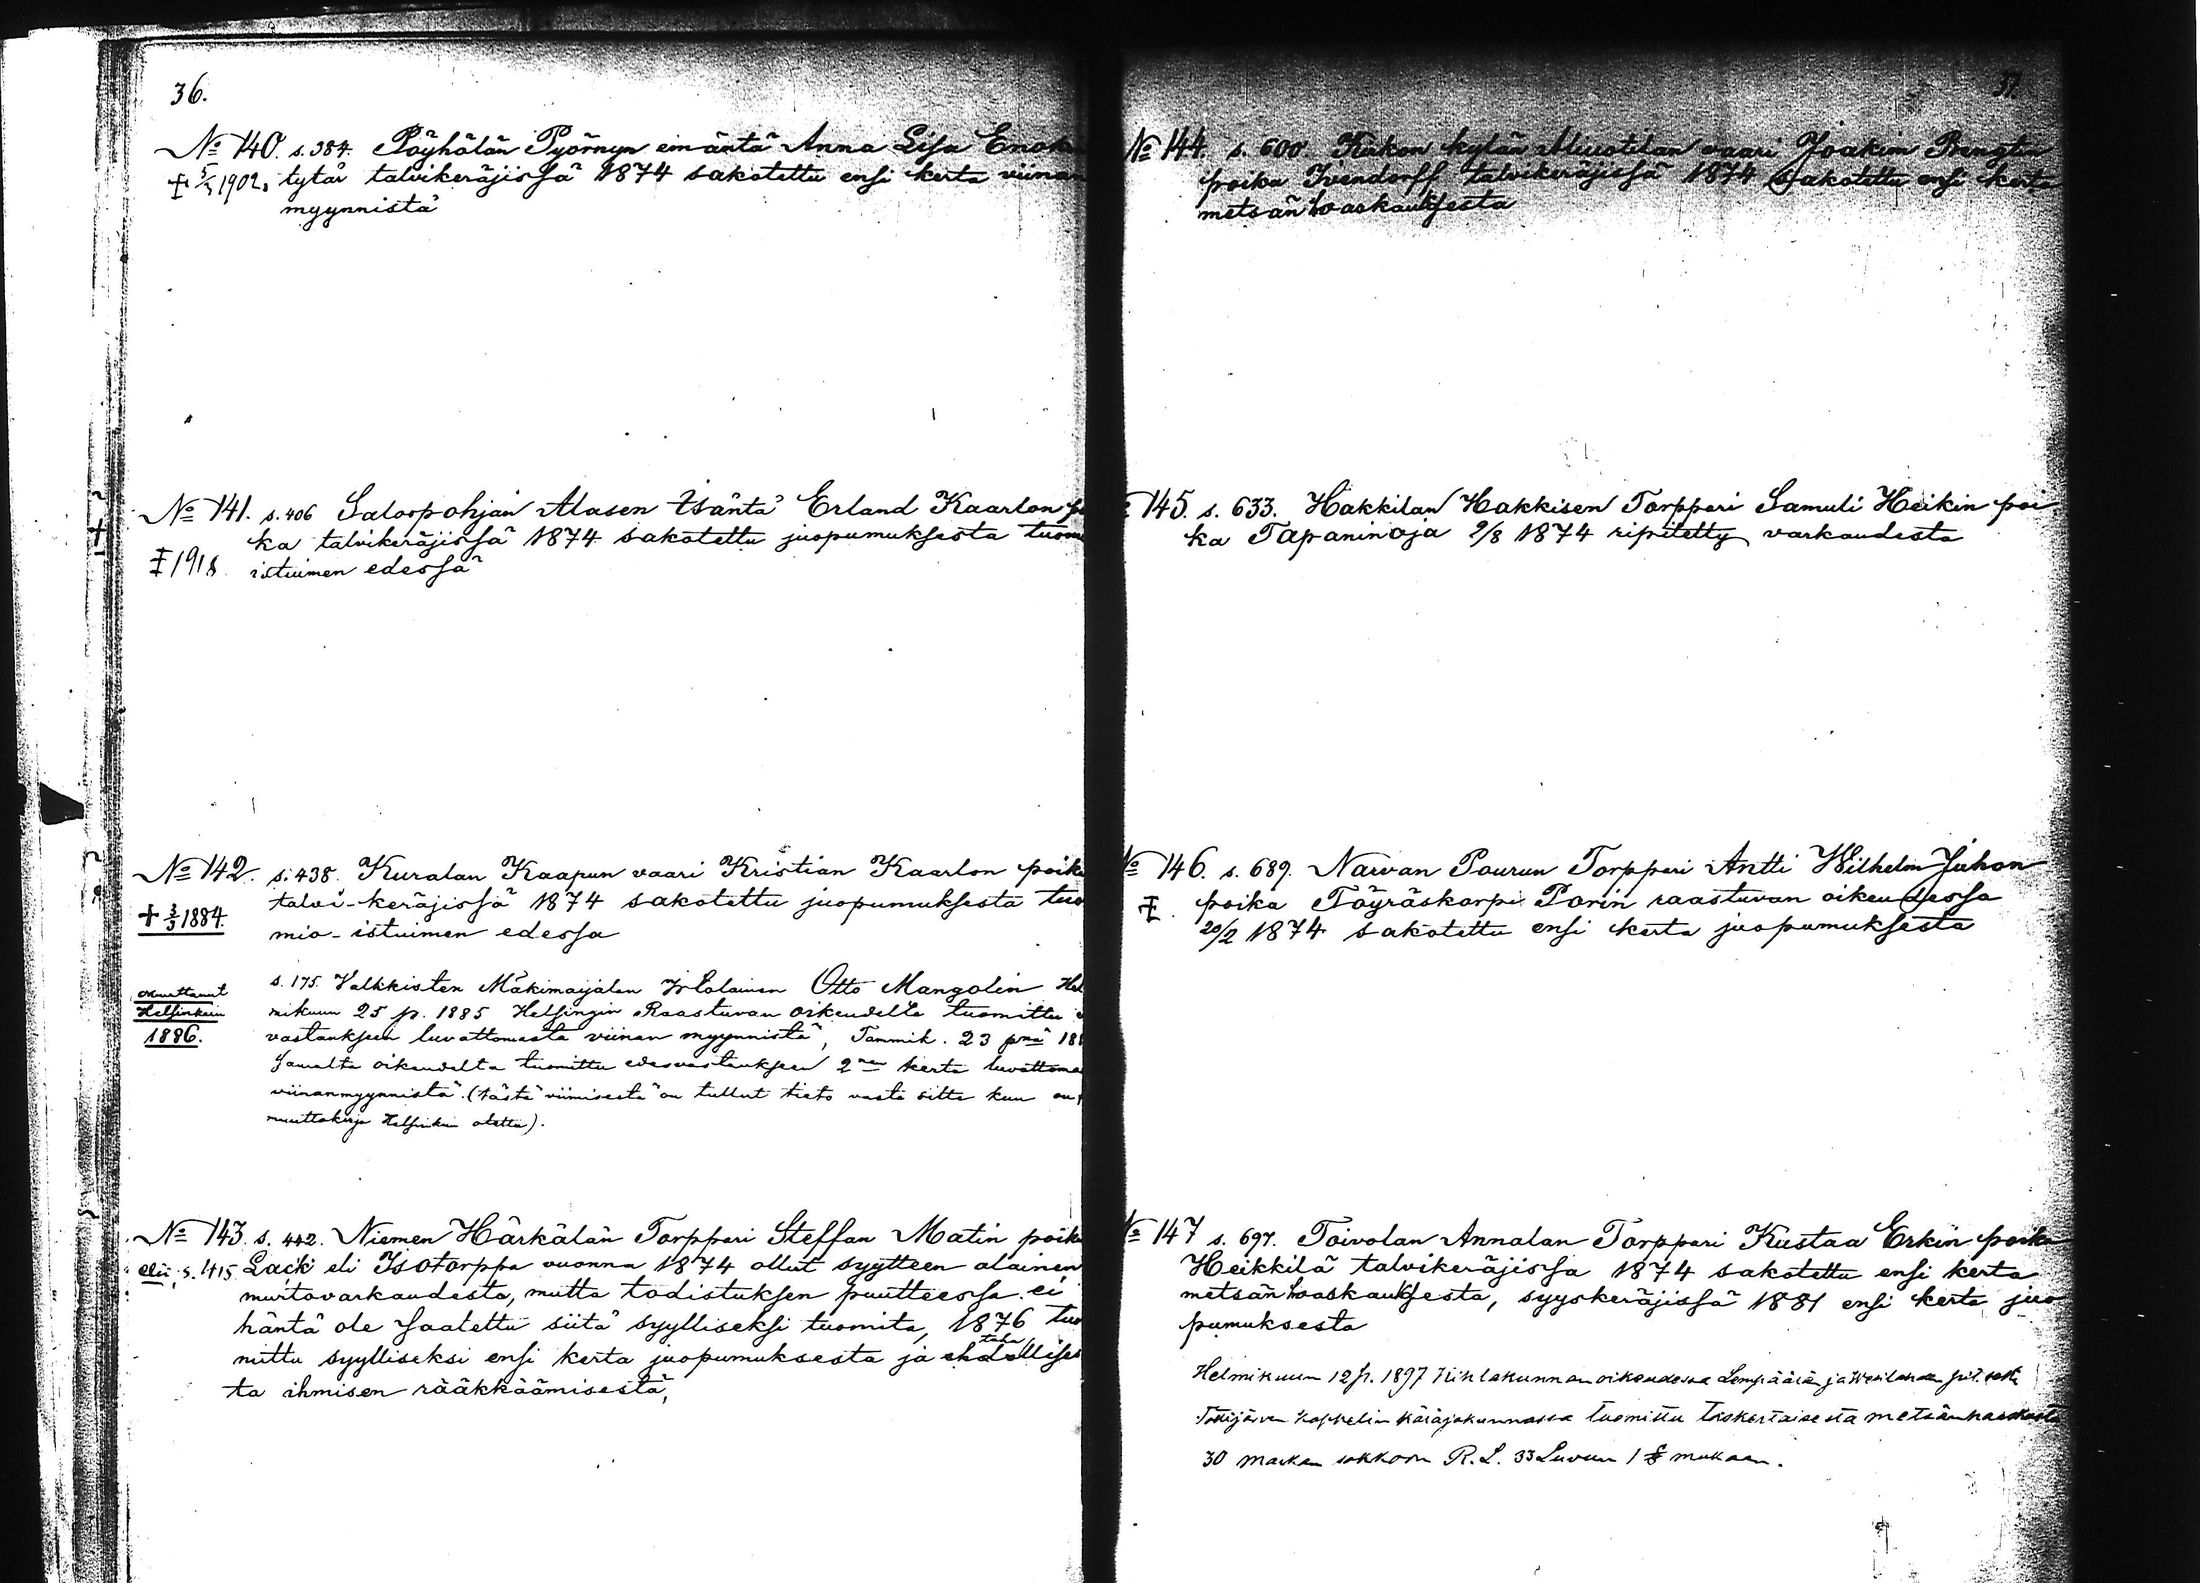 36.
No 140. s. 384. Pöyhölän Pyörnyn emäntä Anna Lisa Enok
1902. tytär talvikeräjissä 1874 sakotettu ensi kerta viinan
myynnistä
No 141. s. 406 Saloopohjan Alasen Isäntä Erland Kaarlon
ka talvikeräjissä 1874 sakotettu juopumuksesta tuom
1918. istuimen edessä
No 142. s. 438. Kuralan Kaapun vaari Kristian Kaarlon poik
talvi-keräjissä 1874 sakotettu juopumuksesta tuo
+ 3/3 1884.
mio-istuimen edessa
s. 175. Valkkisten Mäkimaijalan Itsellainen Otto Mangolin Hel
muuttanut
Helsinkiin
mikuun 25 p. 1885 Helsingin Raastuvan oikeudelta tuomittu
1886.
vastaukseen luvattomasta viinan myynnistä, Tammik. 23 pnä 188
Samalta oikeudelta tuomittu edesvastaukseen 2nen kerta luvattoma
viinanmyynnistä. (tästä viimisestä on tullut tieto vasta sitte kun on
muuttokirja Helsinkiin otettu).
No 143 s. 442. Niemen Härkälän Torppari Steffan Matin poik
s. 415 Lack eli Isotorppa vuonna 1874 ollut syytteen alainen
murtovarkaudesta, mutta todistuksen puutteessa ei
häntä ole saatettu siitä syylliseksi tuomita, 1876 tuo
mittu syylliseksi ensi kerta juopumuksesta ja
ta ihmisen rääkkäämisestä,
37.
No 144. s. 600. Kukon kylän Aliuotilan vaari Joakim Bengtin
poika Ivendorff talvikeräjissä 1874 sakotettu ensi kerta
metsän haaskauksesta
145. s. 633. Hakkilan Hakkisen Torppari Samuli Heikin poi
ka Tapaninoja 2/8 1874 ripitetty varkaudesta
No 146. s. 689. Narvan Pourun Torppari Antti Wilhelm Juhon
poika Töyräskorpi Porin raastuvan oikeudessa
20/2 1874 sakotettu ensi kerta juopumuksesta
No 147 s. 697. Toivolan Annalan Torppari Kustaa Erkin poika
Heikkilä talvikeräjissä 1874 sakotettu ensi kerta
metsän haaskauksesta, syyskeräjissä 1881 ensi kerta juo
pumuksesta
Helmikuun 12 p. 1897 Kihlakunnanoikeudessa Lempäälän ja Wesilahden pit. sekä
Tottijärven kappelin käräjäkunnassa tuomittu
30 markan sakkoon R.L. 33 Luvun 1 § mukaan.